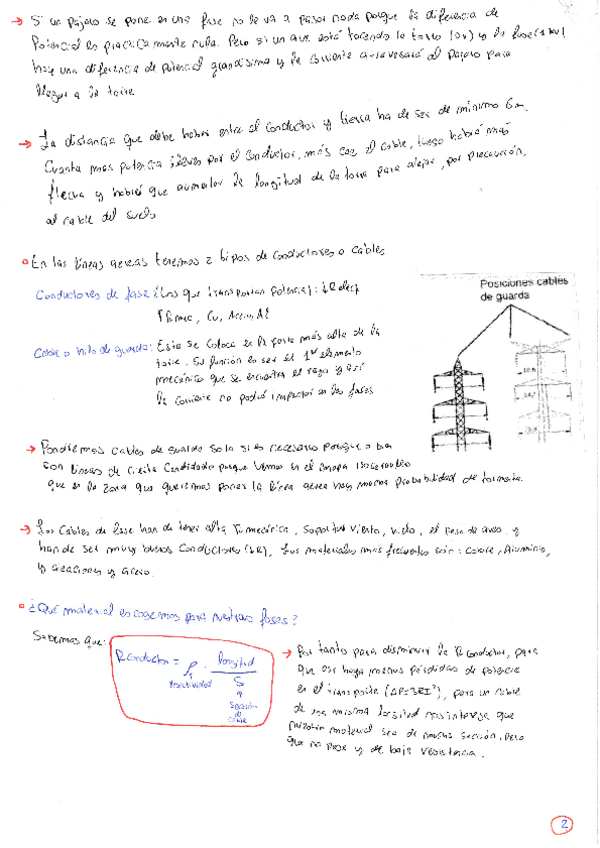 → Si un pájaro se pone en una fase no le va a pasar nada porque la diferencia de
Potencial es practicamente nula. Pero si un que está tocando la torre (0V) y la fase
hay una diferencia de potencial grandísima y la corriente atravesará el pájaro para
llegar a la torre
→ La distancia que debe haber entre el conductor y tierra ha de ser de mínimo 6m.
Cuanta mas potencia lleves por el conductor, más cae el cable, luego habrá más
flecha y habrá que aumentar la longitud de la torre para alejar, por precaución,
al cable del suelo
En las líneas aereas tenemos 2 tipos de conductores o cables
Conductores de fase: (Los que transportan potencia):
↑Rmec, Cu, Acero, Al
Cable o hilo de guarda: Este se coloca en la parte más alta de la
torre. Su función es ser el 1er elemento
mecánico que se encuentra el rayo y así
la corriente no podrá impactar en las fases
Posiciones cables
de guarda
→ Pondremos cables de guarda solo si es necesario porque o bien
son líneas de cierta cantidad porque vemos en el mapa isoceraunico
que en la zona que queremos poner la línea aerea hay mucha probabilidad de tormenta
→ Los cables de fase han de tener alta R mecánica, soportar viento, hielo, el peso de aves y
han de ser muy buenos conductores (↓R). Los materiales más frecuentes son: cobre, Aluminio,
y aleaciones y acero.
¿Qué material escogemos para nuestras fases?
Sabemos que:
R conductor = ρ · longitud
S
resistividad
Sección
de
cable
→ Por tanto para disminuir la R conductor, para
que así haya menos pérdidas de potencia
en el transporte (ΔP=3RI²), para un cable
de una misma longitud nos interesa que
material sea de mayor sección, pero
que no pese y de baja resistencia.
2